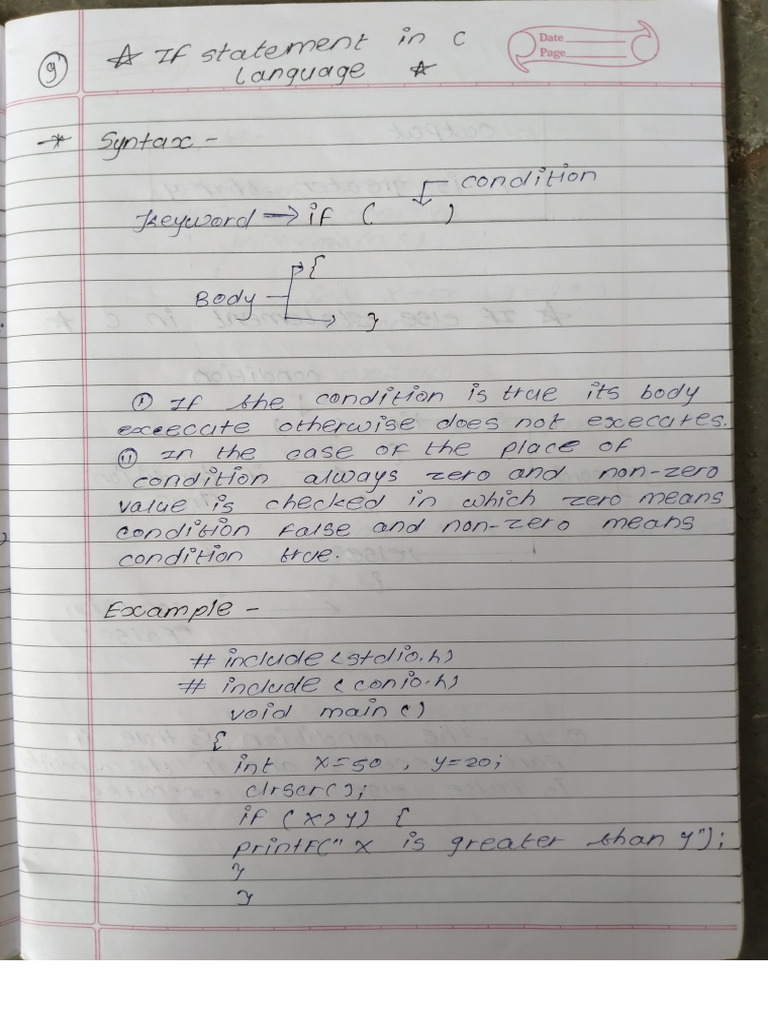 9
☆ If statement in C
Language ☆
Date
Page
* Syntax -
condition
Keyword → if ( )
{
Body
}
① If the condition is true its body
excecate otherwise does not execates.
② In the case of the place of
condition always zero and non-zero
value is checked in which zero means
condition false and non-zero means
condition true.
Example -
# include <stdio.h>
# include <conio.h>
void main()
{
int x=50, y=20;
clrscr();
if (x>y) {
printf(" x is greater than y");
}
}